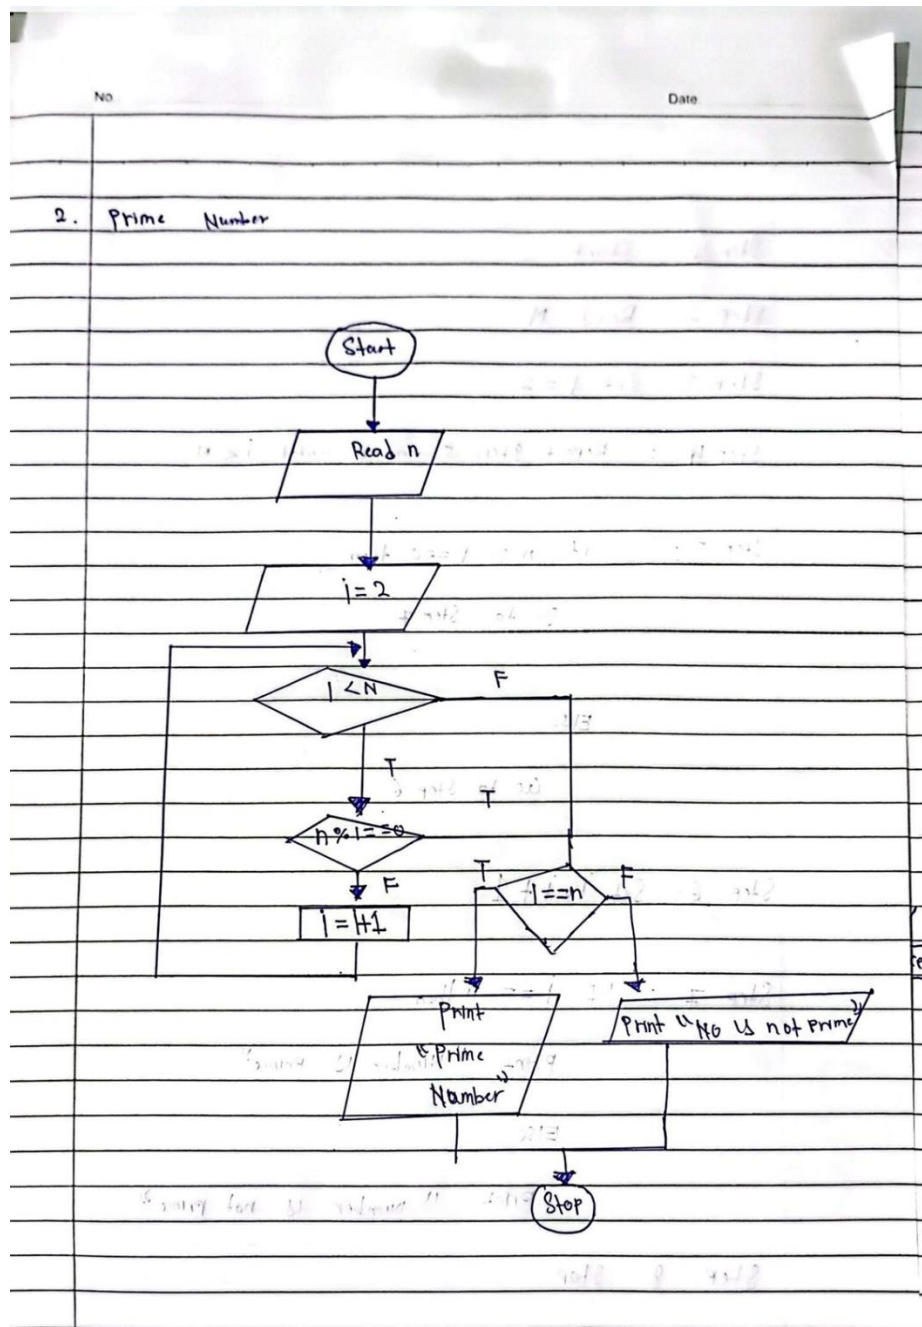 No.
Date
2. Prime Number
Start
Read n
i = 2
i < N
F
T
T
n % i == 0
F
i = i+1
T
i == n
F
Print
"Prime
Number"
Print "No is not prime"
Stop